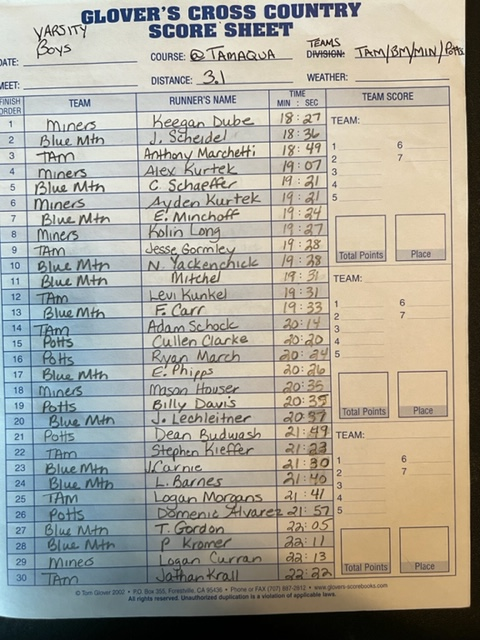 GLOVER'S CROSS COUNTRY
SCORE SHEET
VARSITY
Boys
DATE:
COURSE: @ TAMAQUA
TEAMS
DIVISION: TAM/BM/MIN/Potts
MEET:
DISTANCE: 3.1
WEATHER:
FINISH ORDER TEAM RUNNER'S NAME TIME MIN : SEC TEAM SCORE
1 Miners Keegan Dube 18:27
2 Blue Mtn J. Scheidel 18:36
3 TAm Anthony Marchetti 18:49
4 Miners Alex Kurtek 19:07
5 Blue Mtn C. Schaeffer 19:21
6 Miners Ayden Kurtek 19:21
7 Blue Mtn E. Minchoff 19:24
8 Miners Kolin Long 19:27
9 TAm Jesse Gormley 19:28
10 Blue Mtn N. Yackenchick 19:28
11 Blue Mtn Mitchel 19:31
12 TAm Levi Kunkel 19:31
13 Blue Mtn F. Carr 19:33
14 TAm Adam Schock 20:14
15 Potts Cullen Clarke 20:20
16 Potts Ryan March 20:24
17 Blue Mtn E. Phipps 20:26
18 Miners Mason Houser 20:35
19 Potts Billy Davis 20:35
20 Blue Mtn J. Lechleitner 20:37
21 Potts Dean Budwash 21:49
22 TAm Stephen Kieffer 21:23
23 Blue Mtn J. Carnie 21:30
24 Blue Mtn L. Barnes 21:40
25 TAm Logan Morgans 21:41
26 Potts Domenic Alvarez 21:57
27 Blue Mtn T. Gordon 22:05
28 Blue Mtn P Kromer 22:11
29 Miners Logan Curran 22:13
30 TAm Jathan Krall 22:22
TEAM:
1 6
2 7
3
4
5
Total Points Place
TEAM:
1 6
2 7
3
4
5
Total Points Place
TEAM:
1 6
2 7
3
4
5
Total Points Place
© Tom Glover 2002 • P.O. Box 203, Forestville, CA 95436 • Phone or FAX (707) 887-2812 • www.glovers-scorebooks.com
All rights reserved. Unauthorized duplication is a violation of applicable laws.